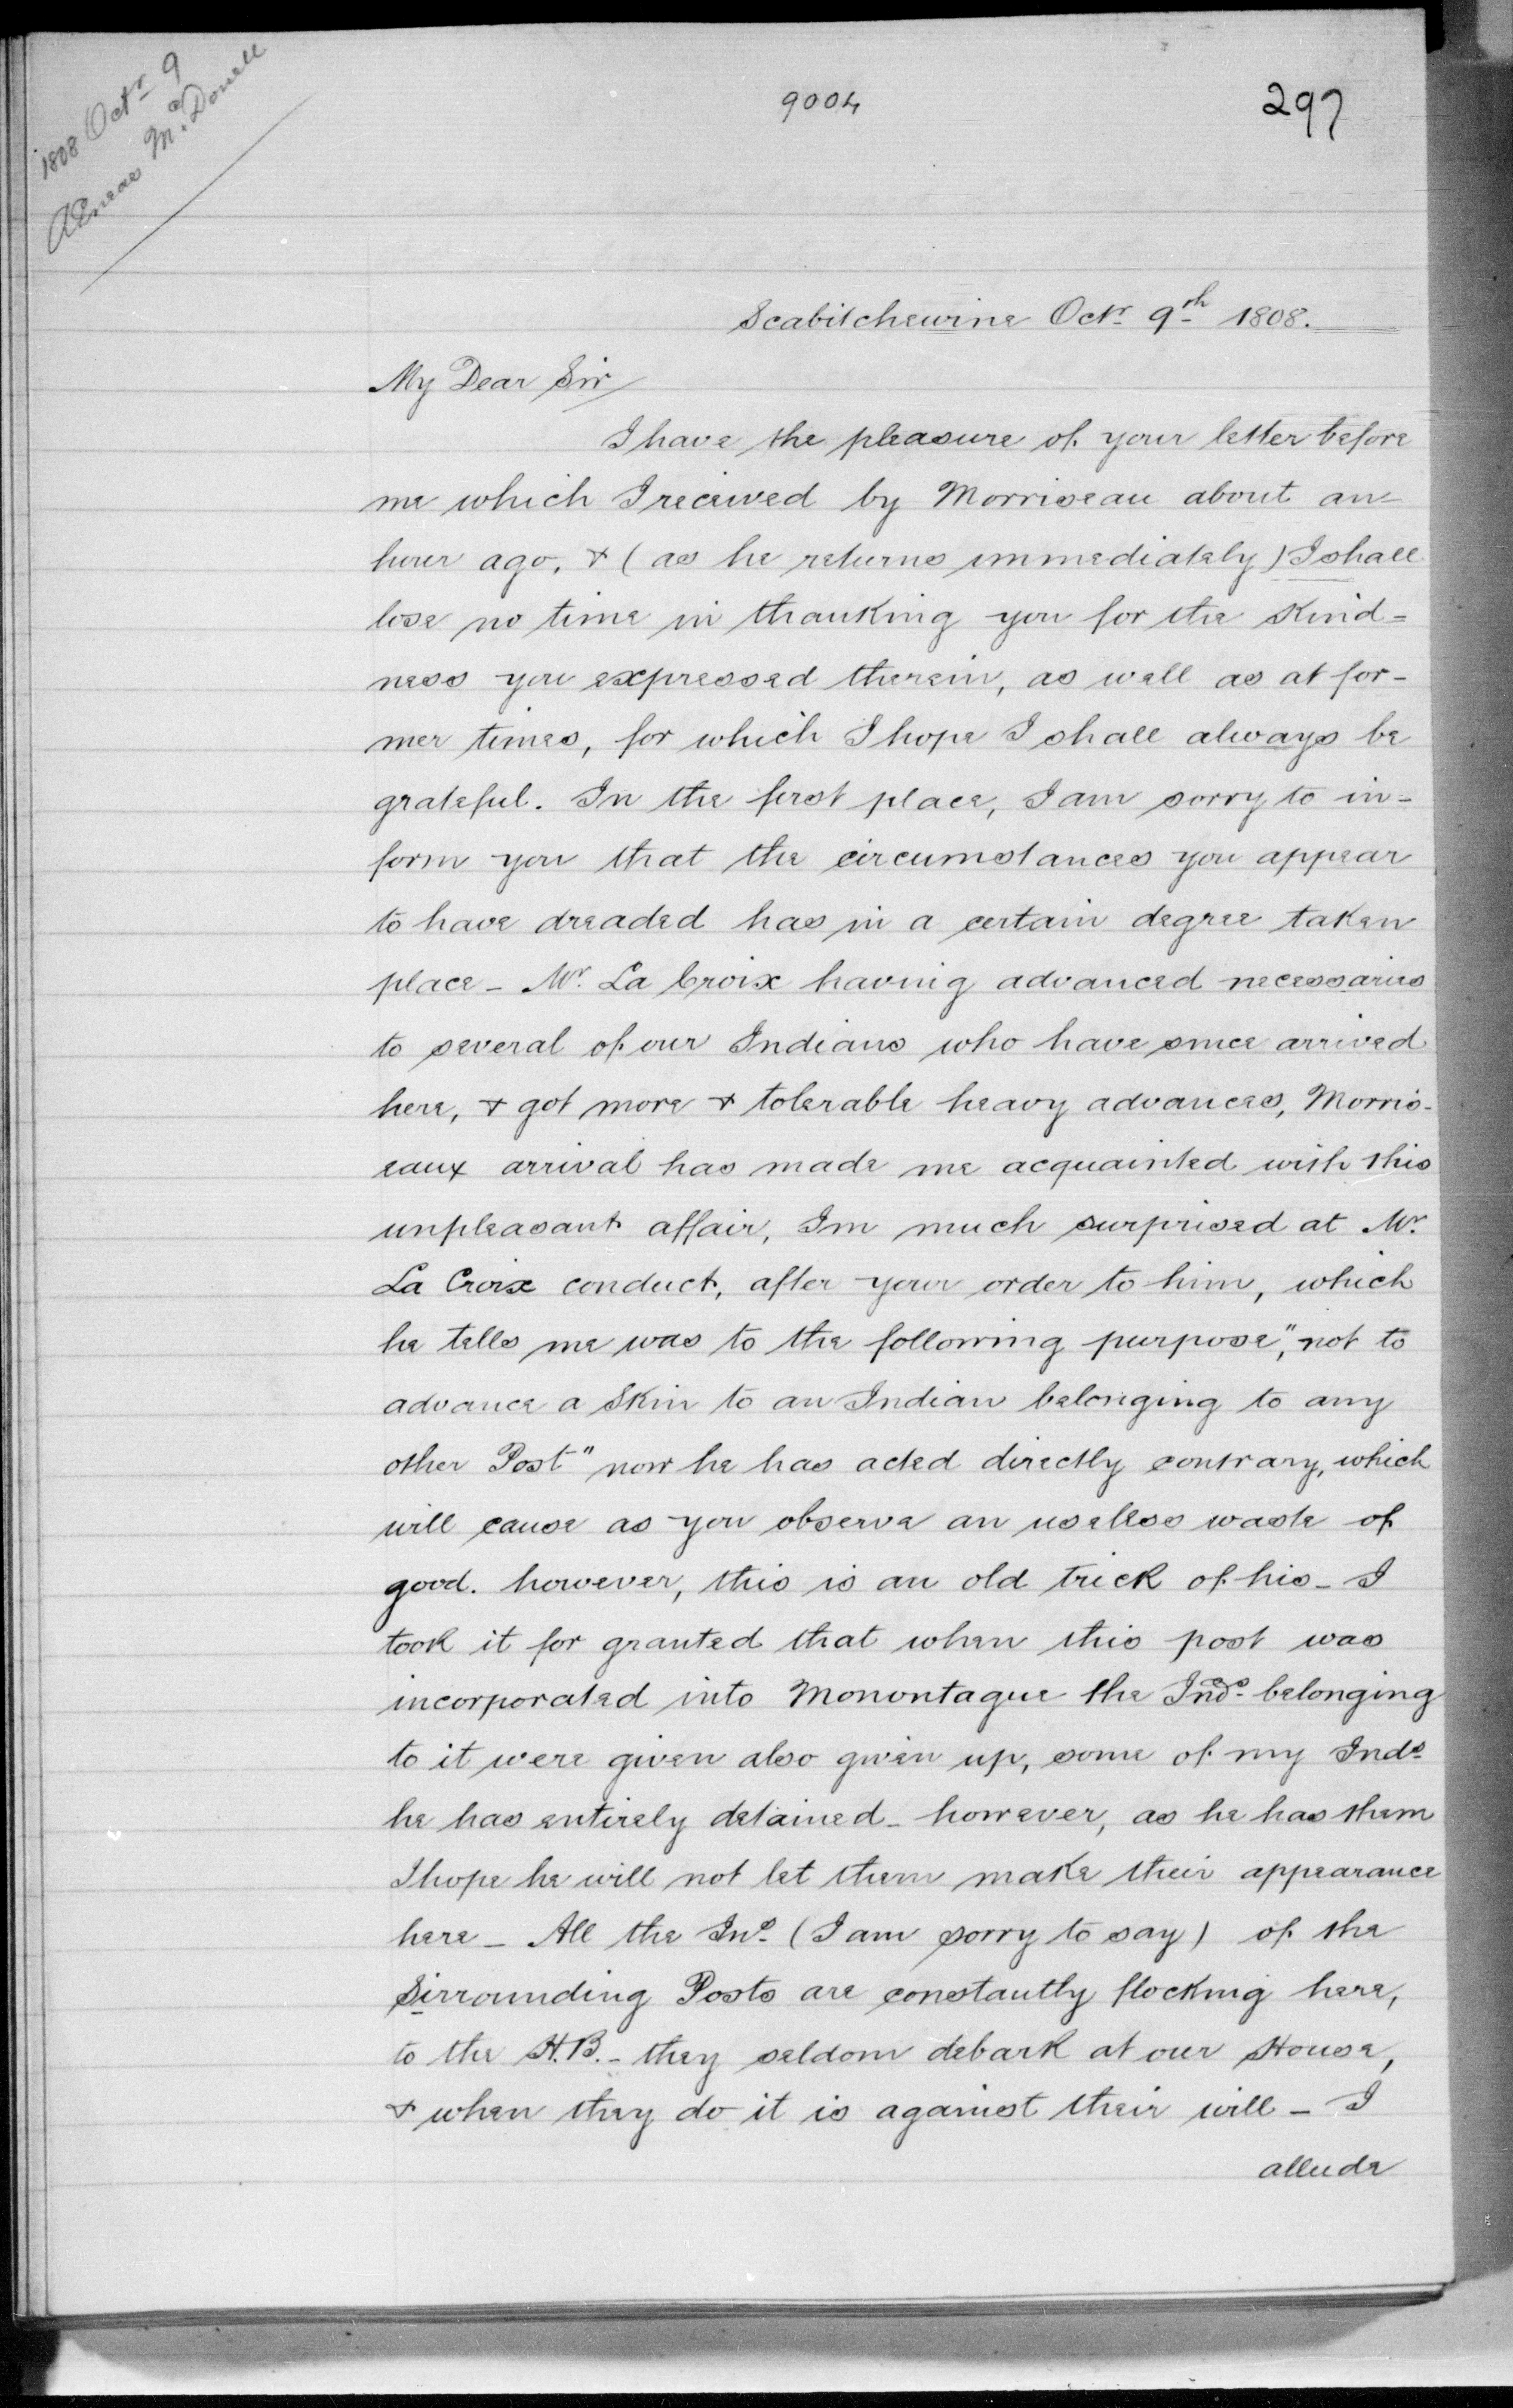 1808 Octr 9
AEneas McDonell
9004
297
Scabitchewine Octr 9th 1808.
My Dear Sir
I have the pleasure of your letter before
me which I received by Morriseau about an
hour ago, & (as he returns immediately) I shall
lose no time in thanking you for the Kind-
ness you expressed therein, as well as at for-
mer times, for which I hope I shall always be
grateful. In the first place, I am sorry to in-
form you that the circumstances you appear
to have dreaded has in a certain degree taken
place - Mr. La Croix having advanced necessaries
to several of our Indians who have since arrived
here, & got more & tolerable heavy advances, Morris-
eaux arrival has made me acquainted with this
unpleasant affair, Im much surprised at Mr.
La Croix conduct, after your order to him, which
he tells me was to the following purpose, "not to
advance a Skin to an Indian belonging to any
other Post" now he has acted directly contrary, which
will cause as you observe an useless waste of
good. however, this is an old trick of his - I
took it for granted that when this post was
incorporated into Monontague the Inds. belonging
to it were given also given up, some of my Inds
he has entirely detained - however, as he has them
I hope he will not let them make their appearance
here - All the Ins. (I am sorry to say) of the
Sirrounding Posts are constantly flocking here,
to the H.B. - they seldom debark at our House,
& when they do it is against their will - I
allude